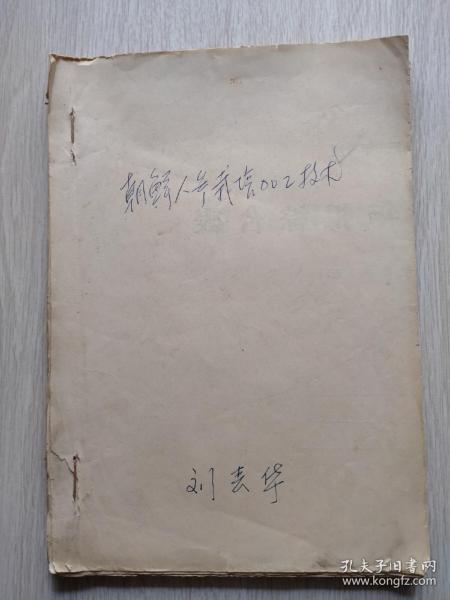 朝鲜人参栽培加工技术
刘春华
孔夫子旧书网
www.kongfz.com